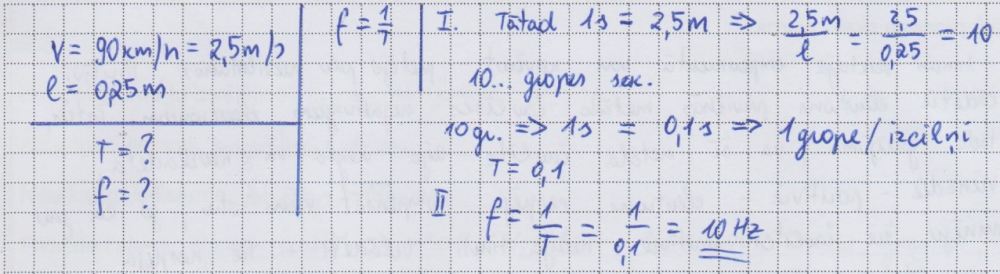 V = 90 km/h = 2,5 m/s
l = 0,25 m
T = ?
f = ?
f = 1/T
I. Tātad 1s = 2,5m => 2,5m/l = 2,5/0,25 = 10
10... gropes sek.
10 gr. => 1s = 0,1s => 1 grope / izcilņi
T = 0,1
II f = 1/T = 1/0,1 = 10 Hz